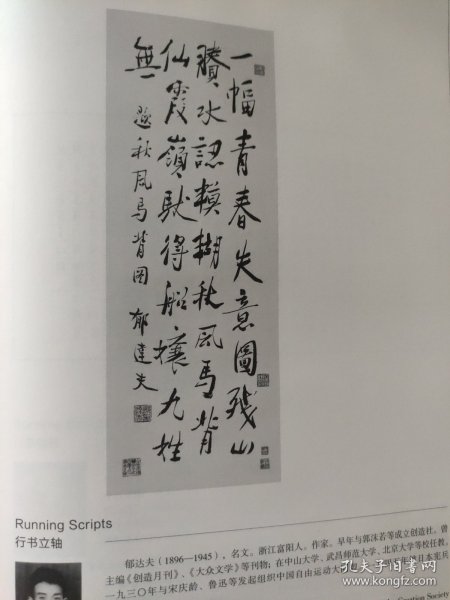 一幅青春失意圖殘山
賸水認模糊秋風馬背
仙霞嶺馱得船孃九姓
無
題秋風馬背図 郁達夫
Running Scripts
行书立轴
郁达夫（1896—1945），名文。浙江富阳人。作家。早年与郭沫若等成立创造社，曾
主编《创造月刊》、《大众文学》等刊物；在中山大学、武昌师范大学、北京大学等校任教。
一九三〇年与宋庆龄、鲁迅等发起组织中国自由运动大 日本宪兵
Creation Society
孔夫子旧书网